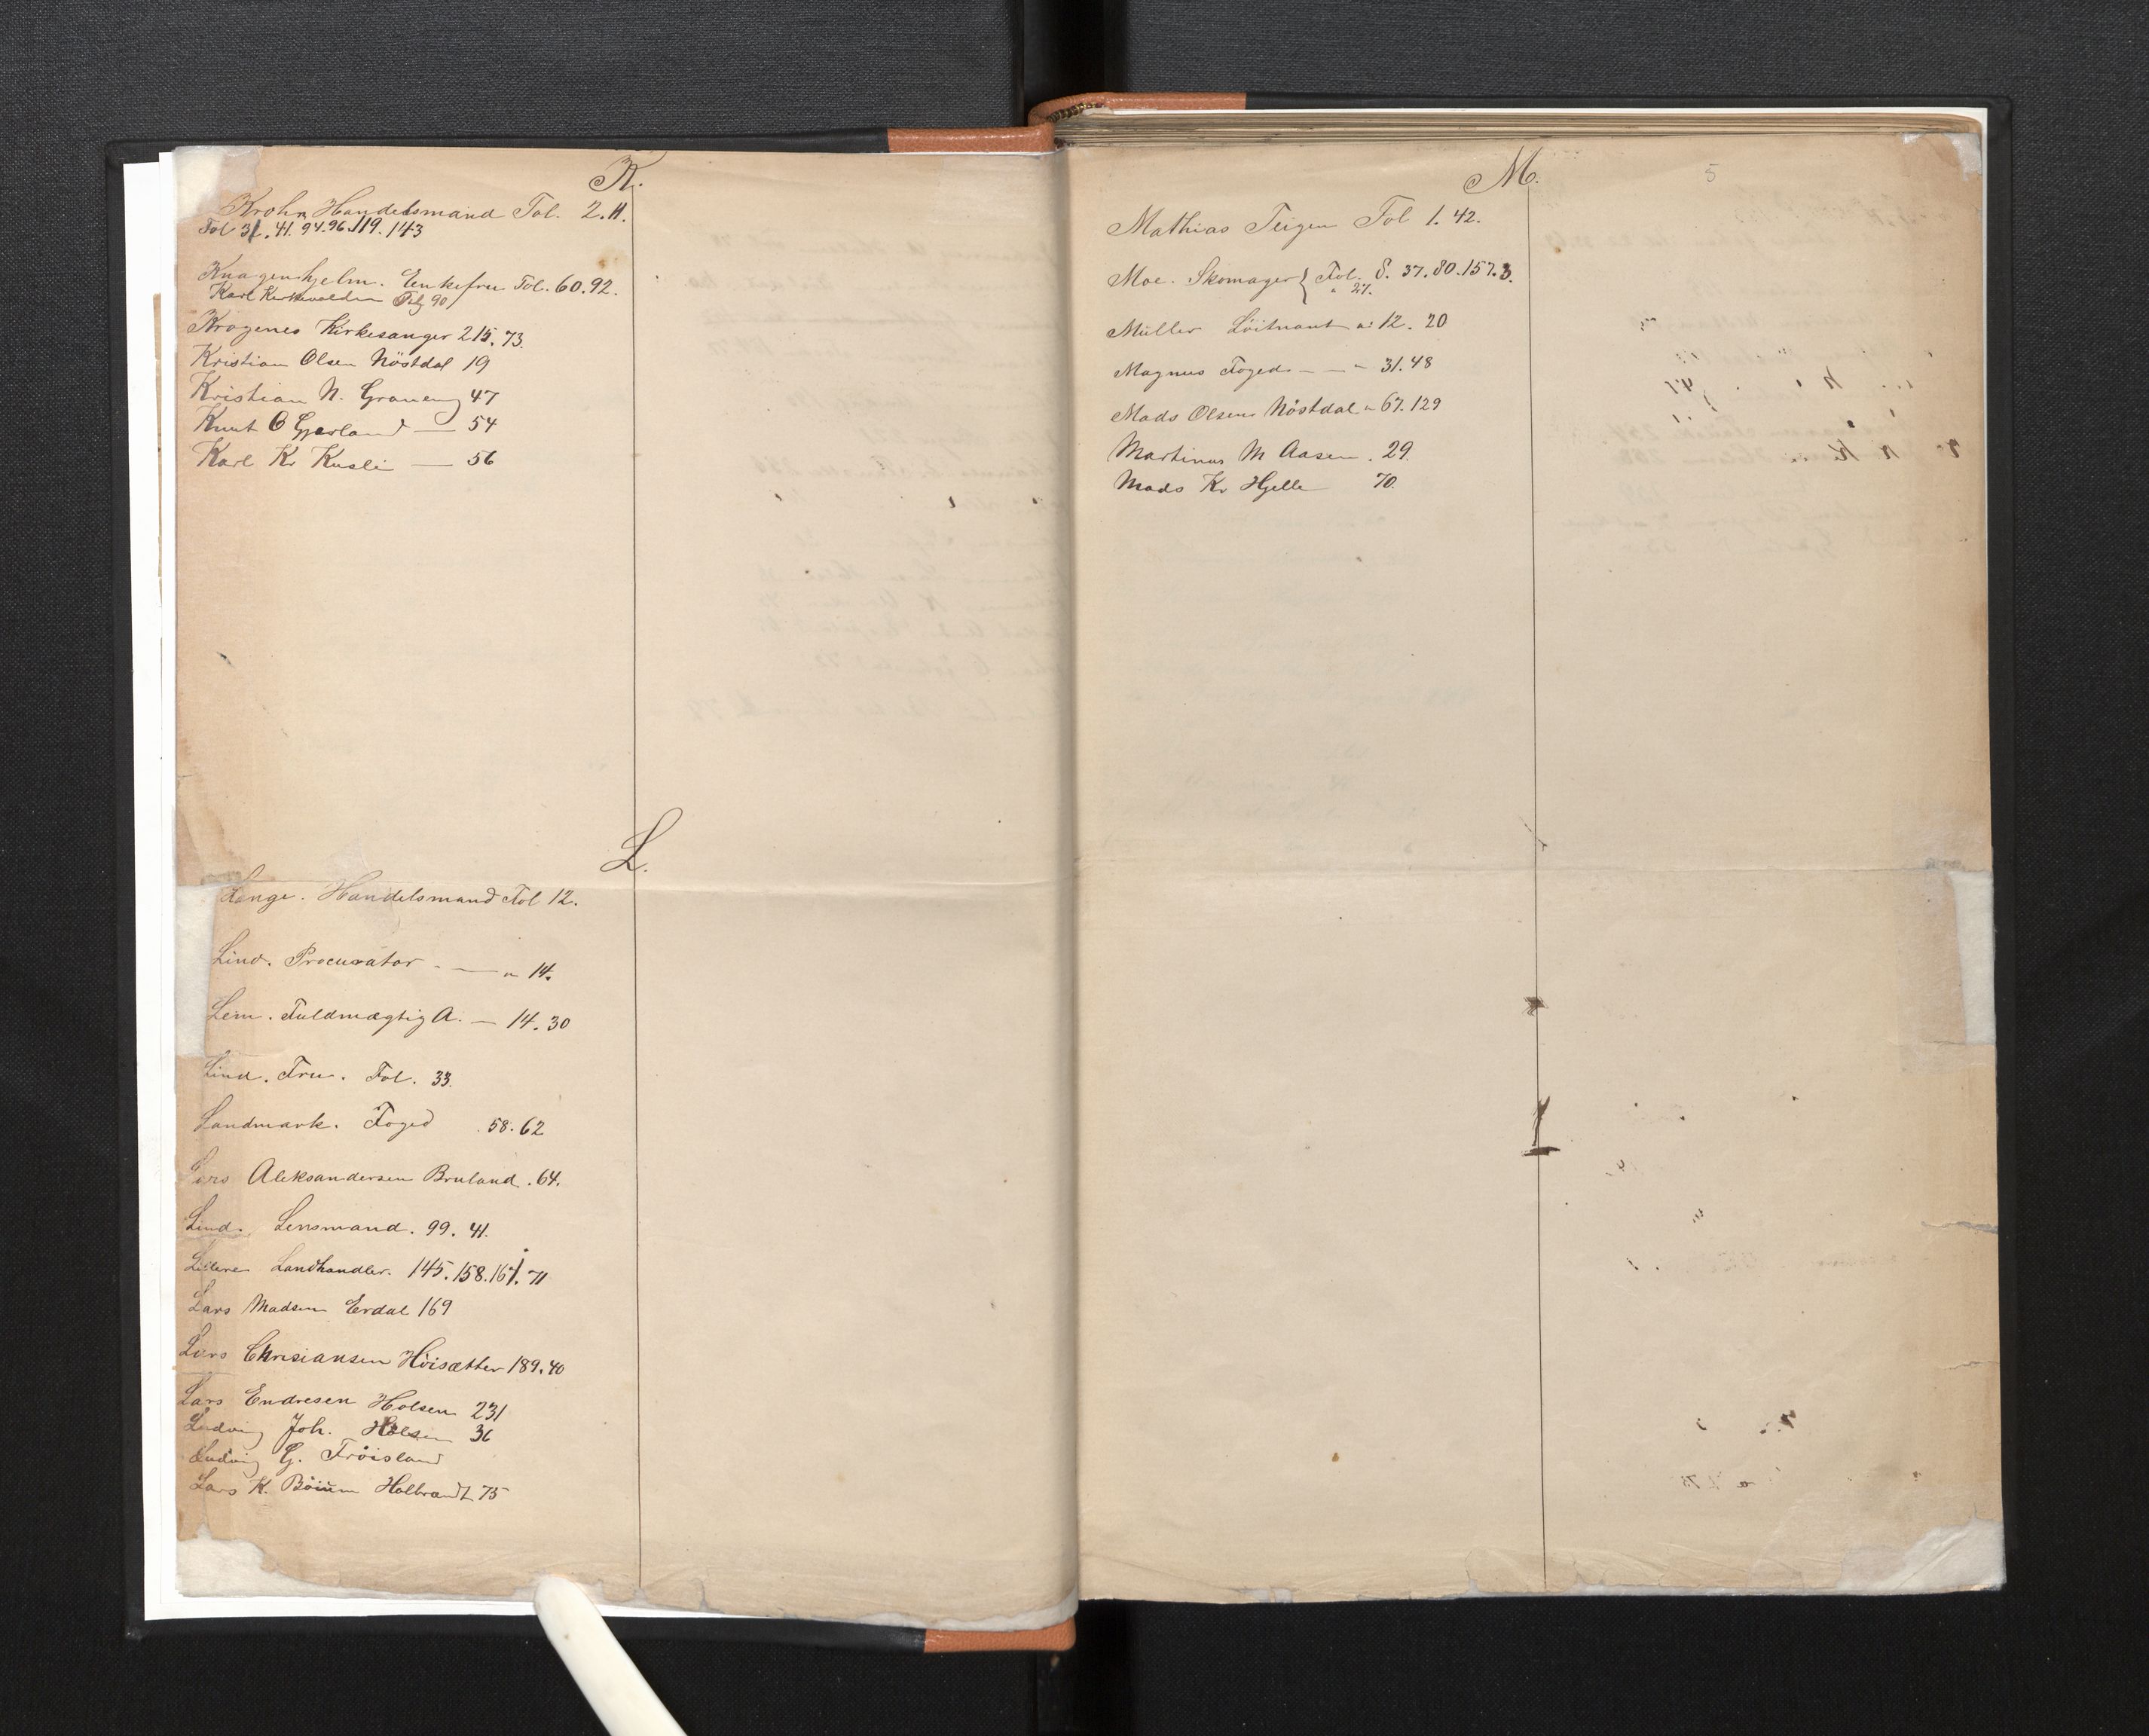 K.
Krohn Handelsmand Fol. 2.11.
Fol 31. 41. 94. 96. 119. 143
Knagenhjelm. Enkefru Fol. 60. 92.
Karl 90
Krogenes Kirkesanger 215. 73.
Kristian Olsen Nöstdal 19
Kristian N. 47
Knut O Gjerland — 54
Karl Kr Kusli — 56
L.
Lange. Handelsmand Fol 12.
Lind. Procurator - — " 14.
Lem. Fuldmægtig A. — 14. 30
Lind. Fru. Fol. 33.
Landmark. Foged . 58. 62
Lars Aleksandersen Bruland . 64.
Lind. Lensmand. 99. 41.
Landhandler. 145. 158. 71
Lars Madsen Erdal 169
Lars Chrisiansen Höisætter 189. 40
Lars Endresen Holsen 231
Ludvig Joh. Holsen 36
Ludvig G. Fröisland
Lars K. Böium 75
M.
5
Mathias Teigen Fol 1. 42.
Moe. Skomager } Fol. 8. 37. 80. 157. 3.
" 27.
Müller Löitnant a: 12. 20
Magnus Foged — — " 31. 48
Mads Olsen Nöstdal " 67. 129
Martinus M Aasen . 29.
Mads Kr Hjelle 70.